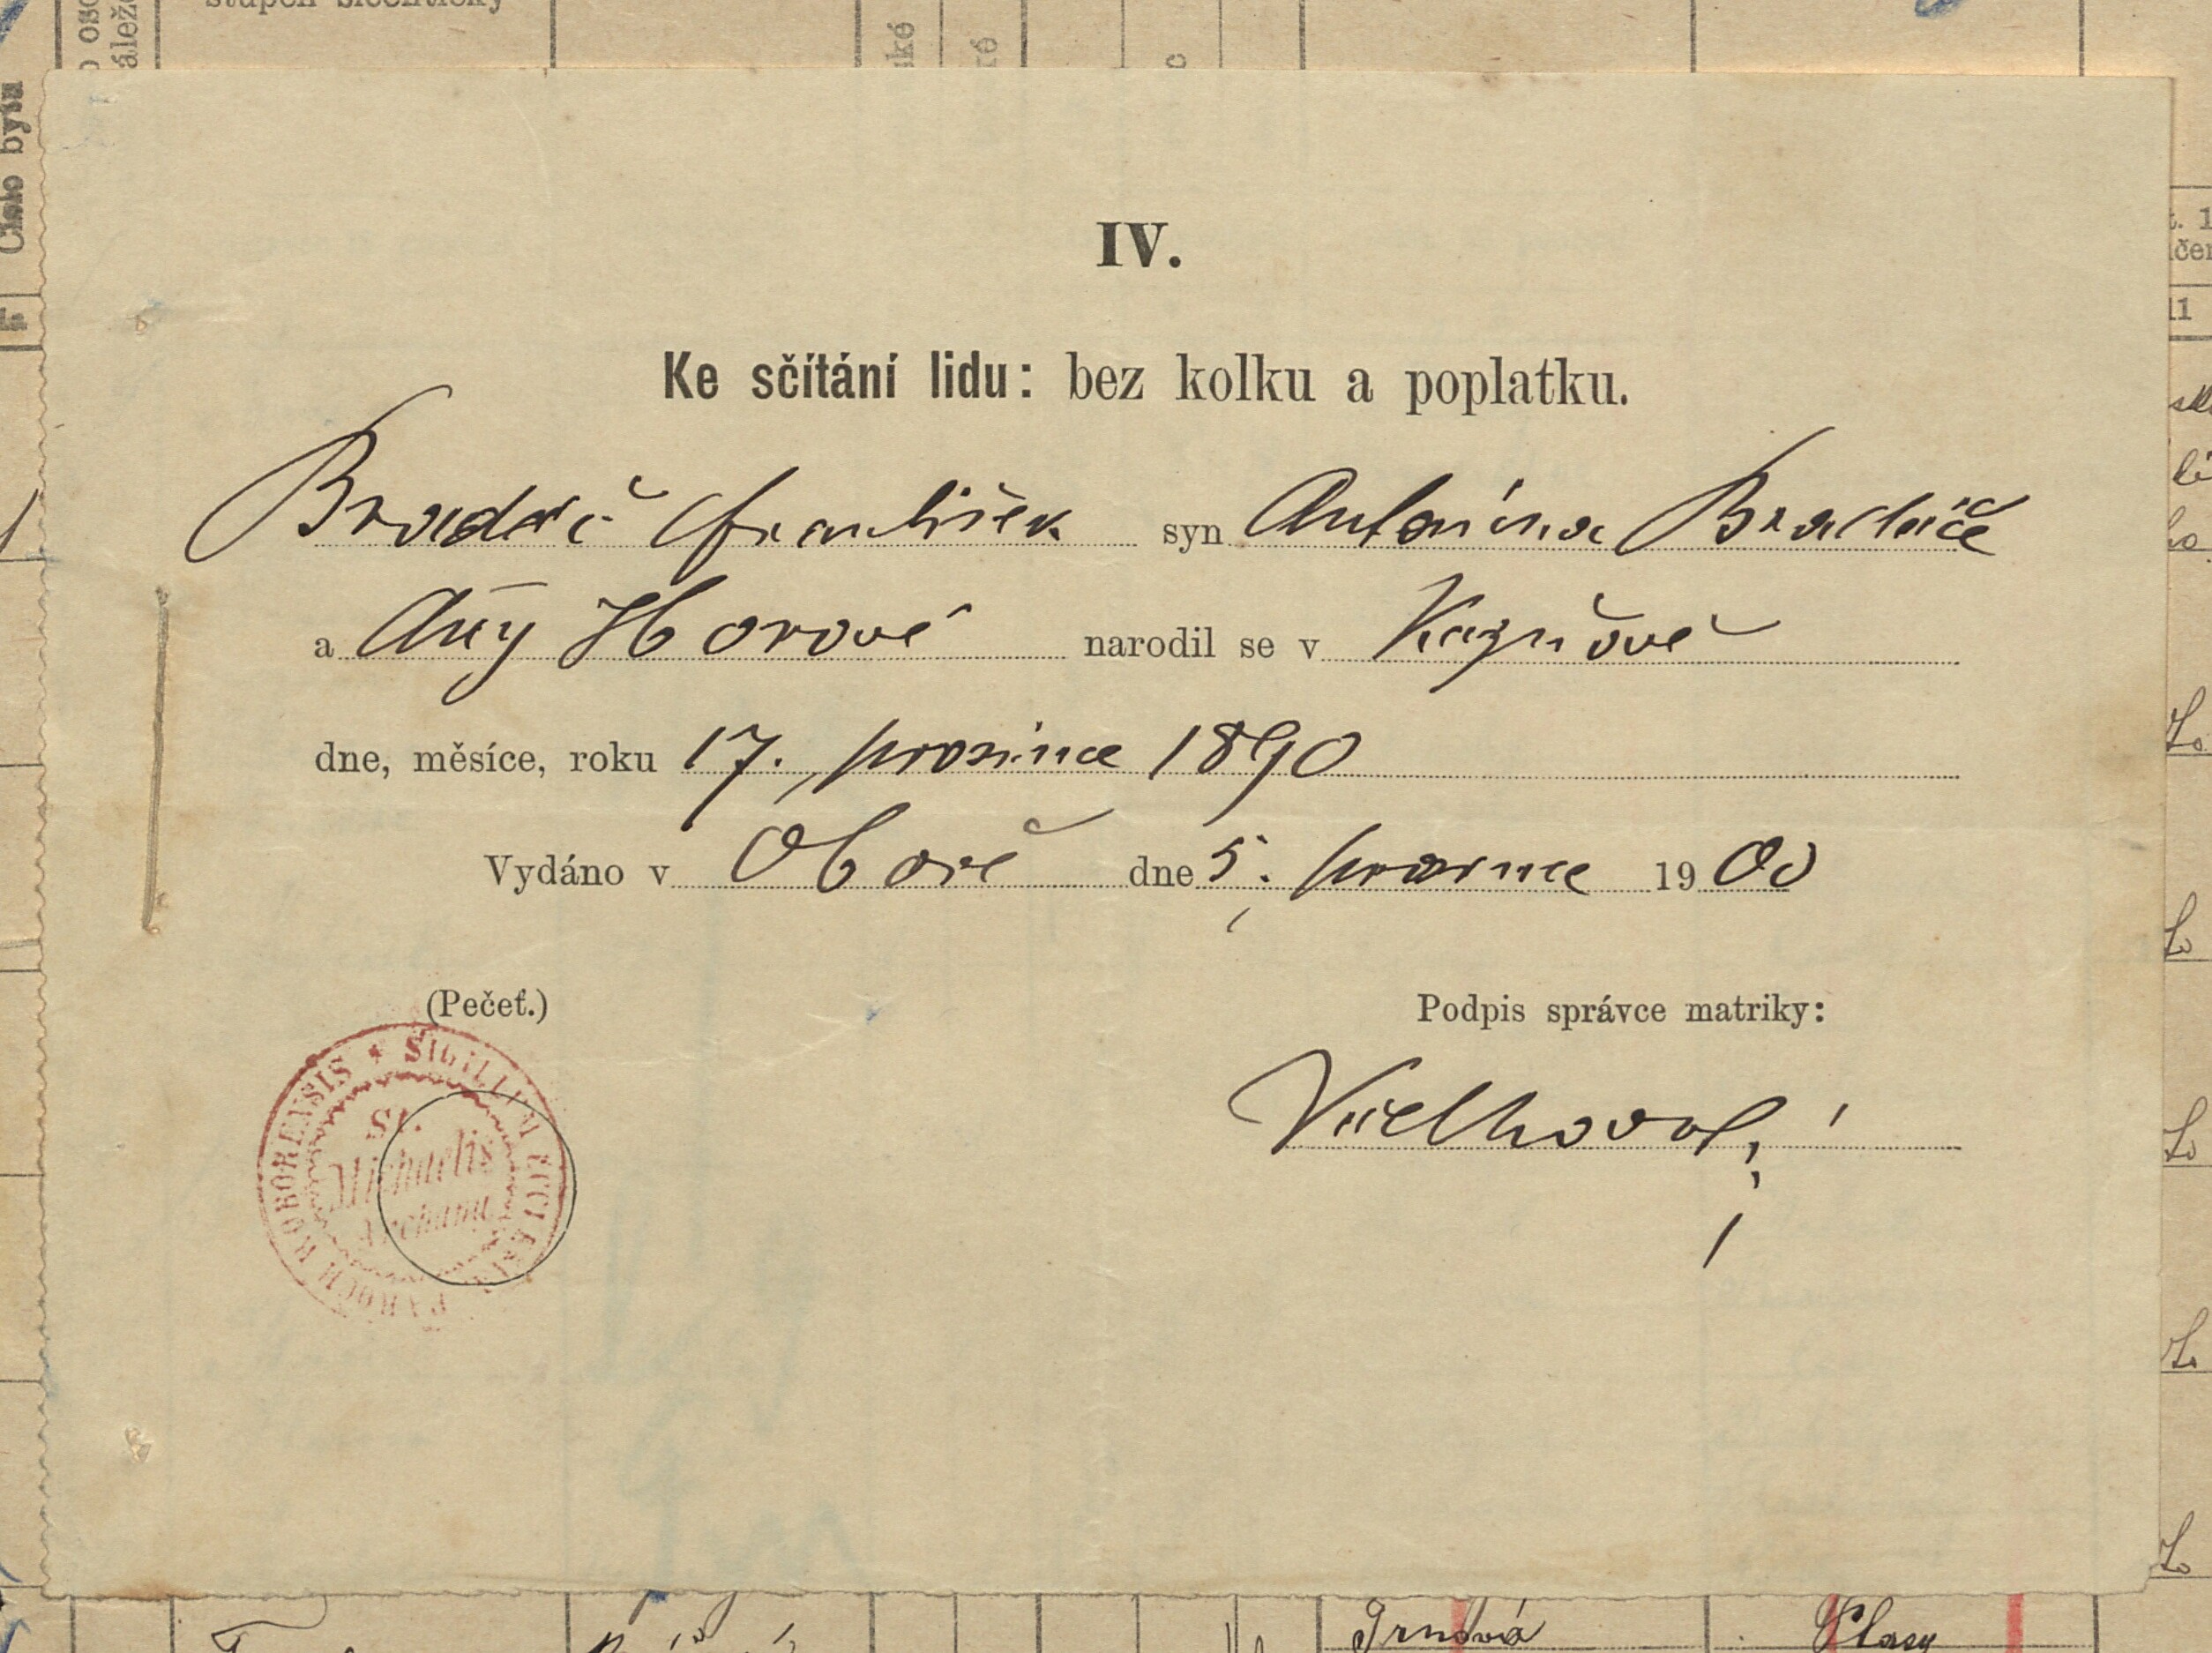 stupeň šlechtický
Číslo bytu
IV.
Ke sčítání lidu: bez kolku a poplatku.
Bradáč František syn Antonína Bradáče
a Anny Horové narodil se v Kaznějově
dne, měsíce, roku 17. prosince 1890
Vydáno v Oboře dne 5. prosince 1900
(Pečeť.)
Podpis správce matriky:
SIGILLUM ECCLESIAE PAROCH ROBORENSIS
St.
Michaelis
Archang
Plasy